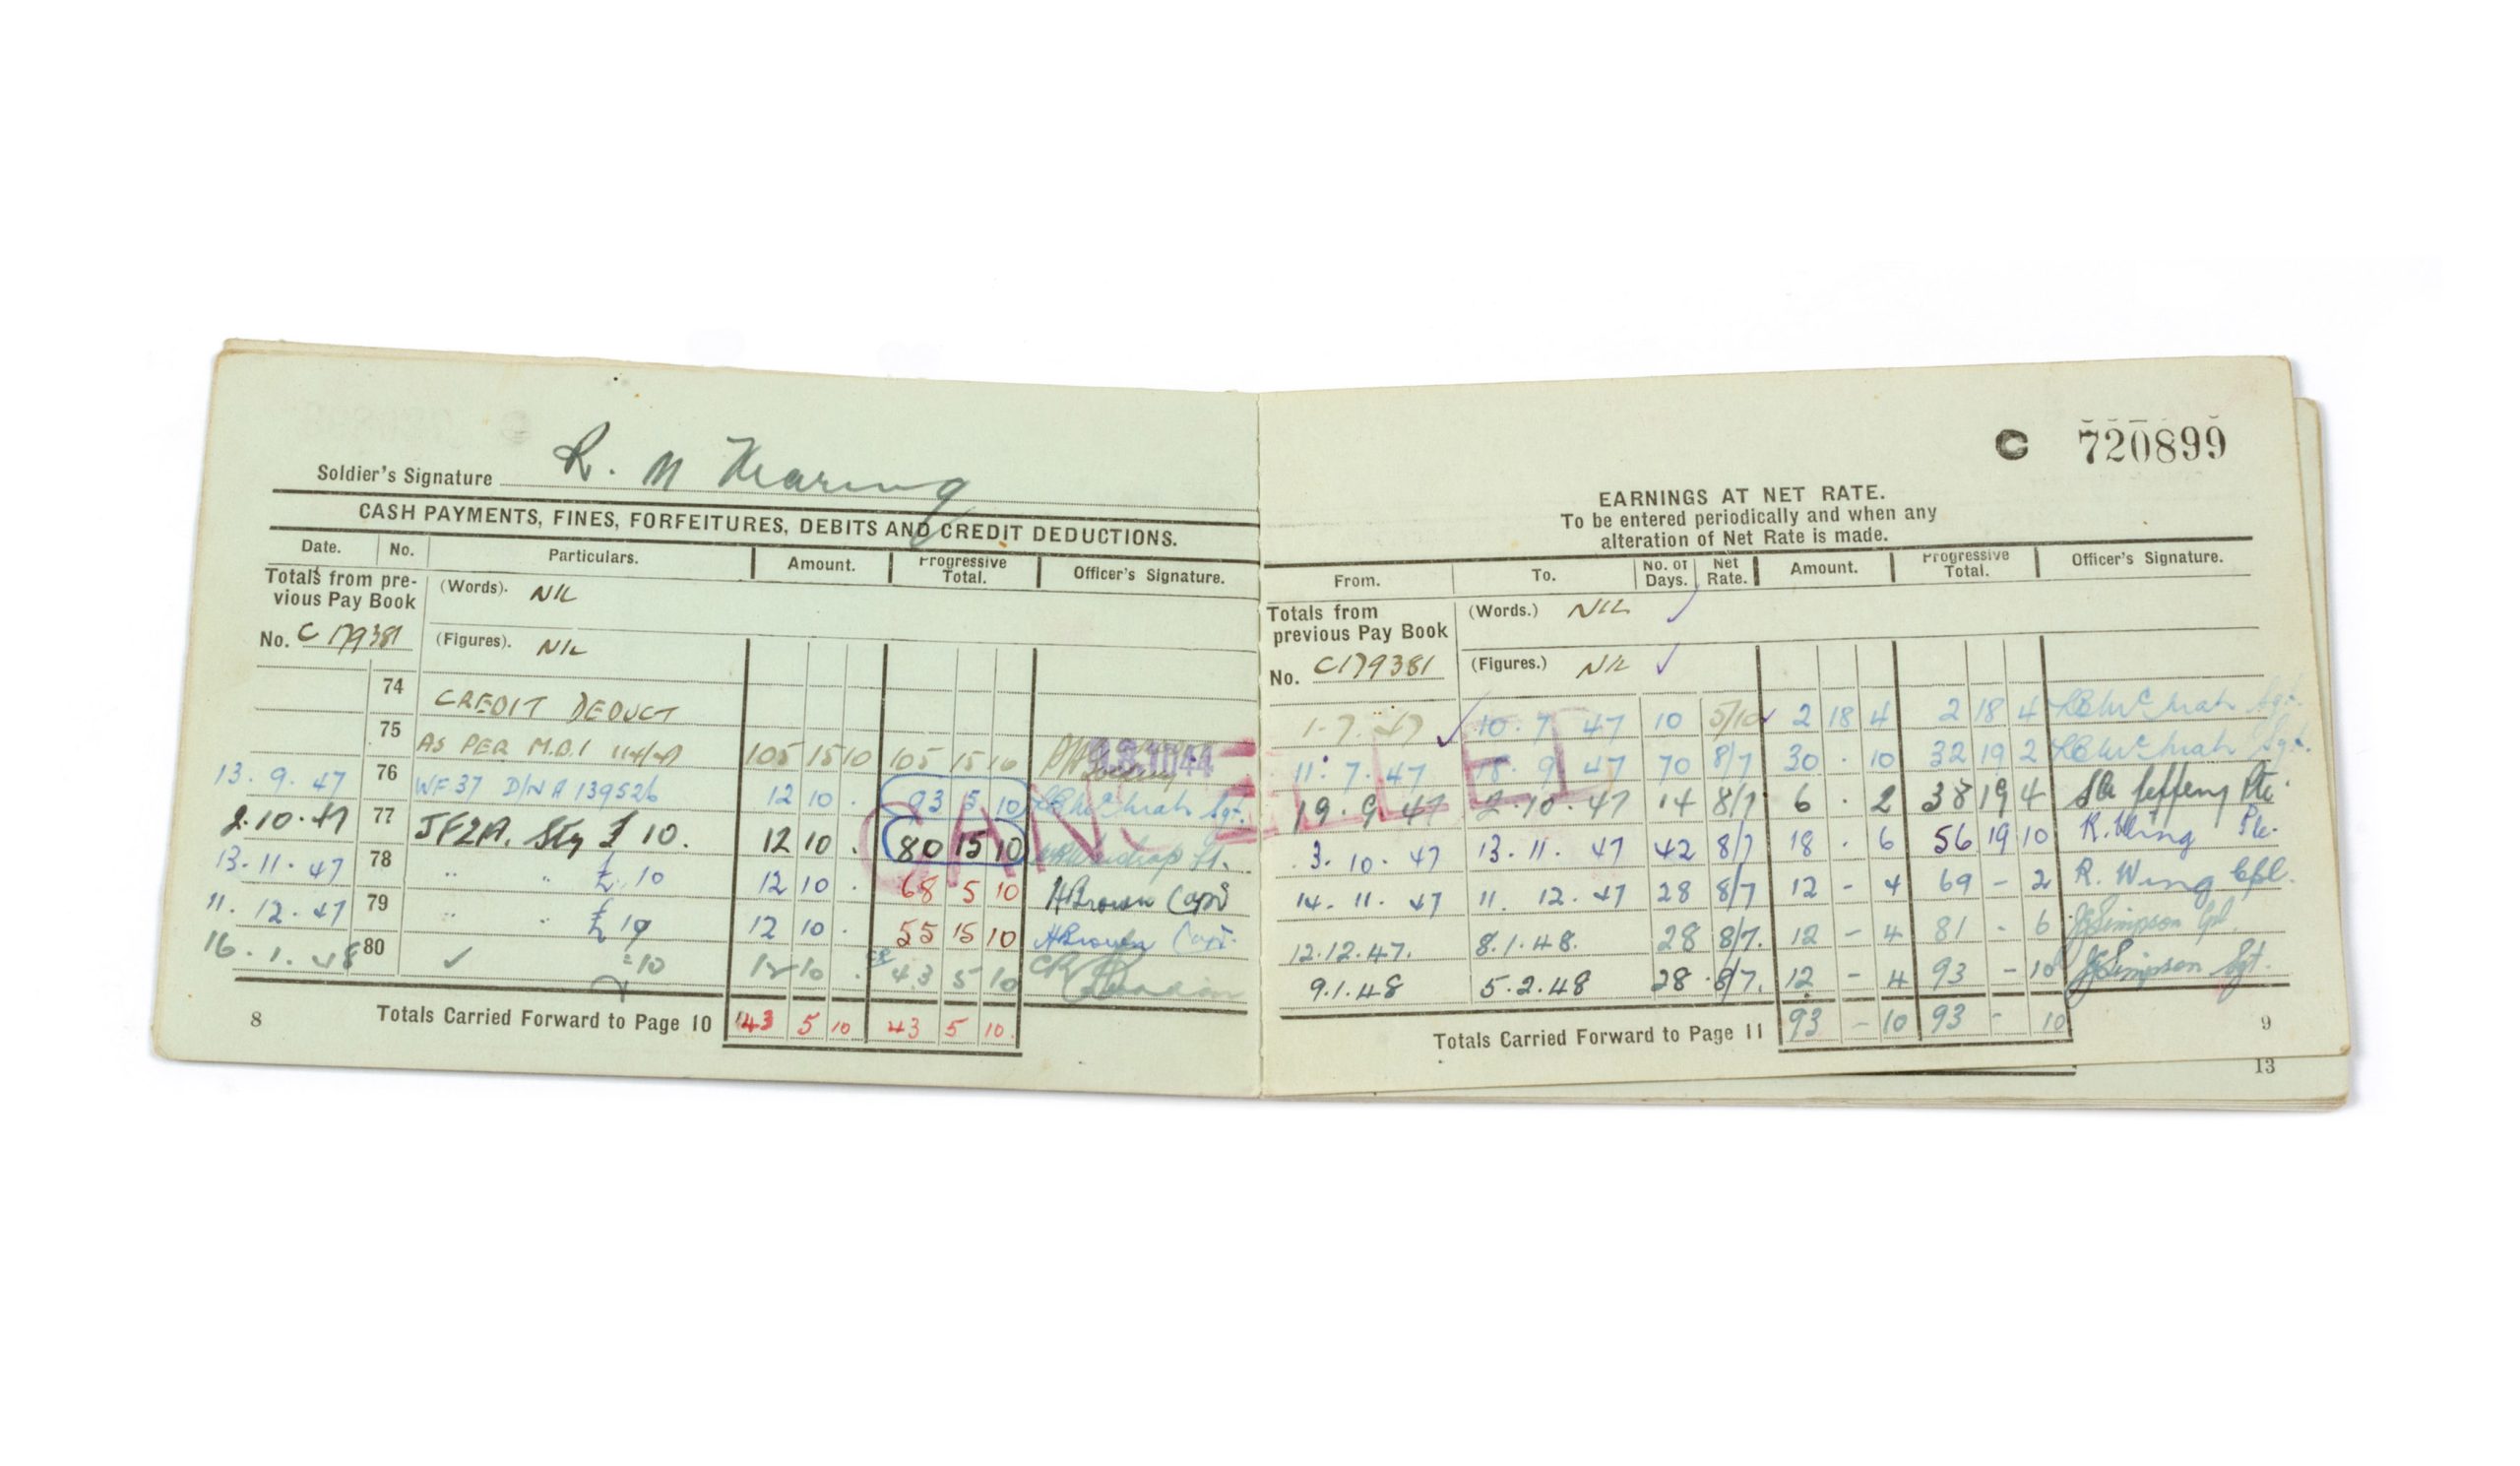 Soldier's Signature R. M
CASH PAYMENTS, FINES, FORFEITURES, DEBITS AND CREDIT DEDUCTIONS.
Date. No. Particulars. Amount. Progressive Total. Officer's Signature.
Totals from pre-
vious Pay Book
(Words). NIL
No. C179381 (Figures). NIL
74 CREDIT DEDUCT
75 AS PER M.D.1 105 15 10 105 15 10
13. 9. 47 76 WF 37 D/N A 139526 12 10 . 93 5 10 Sgt.
2.10.47 77 JF2A. Stg £ 10. 12 10 . 80 15 10 Lt.
13. 11. 47 78 " " £ 10 12 10 . 68 5 10 HBrown Capt
11. 12. 47 79 " " £ 10 12 10 . 55 15 10 HBrown Capt.
16. 1. 48 80 ✓ 10 12 10 . 43 5 10
8 Totals Carried Forward to Page 10 43 5 10 43 5 10.
CANCELLED
C 720899
EARNINGS AT NET RATE.
To be entered periodically and when any
alteration of Net Rate is made.
From. To. No. of Days. Net Rate. Amount. Progressive Total. Officer's Signature.
Totals from
previous Pay Book
(Words.) NIL
No. C179381 (Figures.) NIL
1.7.47 10.7.47 10 5/10 2 18 4 2 18 4 Sgt.
11.7.47 18.9.47 70 8/7 30 . 10 32 19 2 Sgt.
19.9.47 2.10.47 14 8/7 6 . 2 38 19 4 Jeffery Pte.
3.10.47 13.11.47 42 8/7 18 . 6 56 19 10 R. Wing Pte.
14.11.47 11.12.47 28 8/7 12 - 4 69 - 2 R. Wing Cpl.
12.12.47. 8.1.48. 28 8/7. 12 - 4 81 - 6 JSimpson Cpl.
9.1.48 5.2.48 28 8/7. 12 - 4 93 - 10 JSimpson Sgt.
Totals Carried Forward to Page 11 93 - 10 93 - 10 9
13